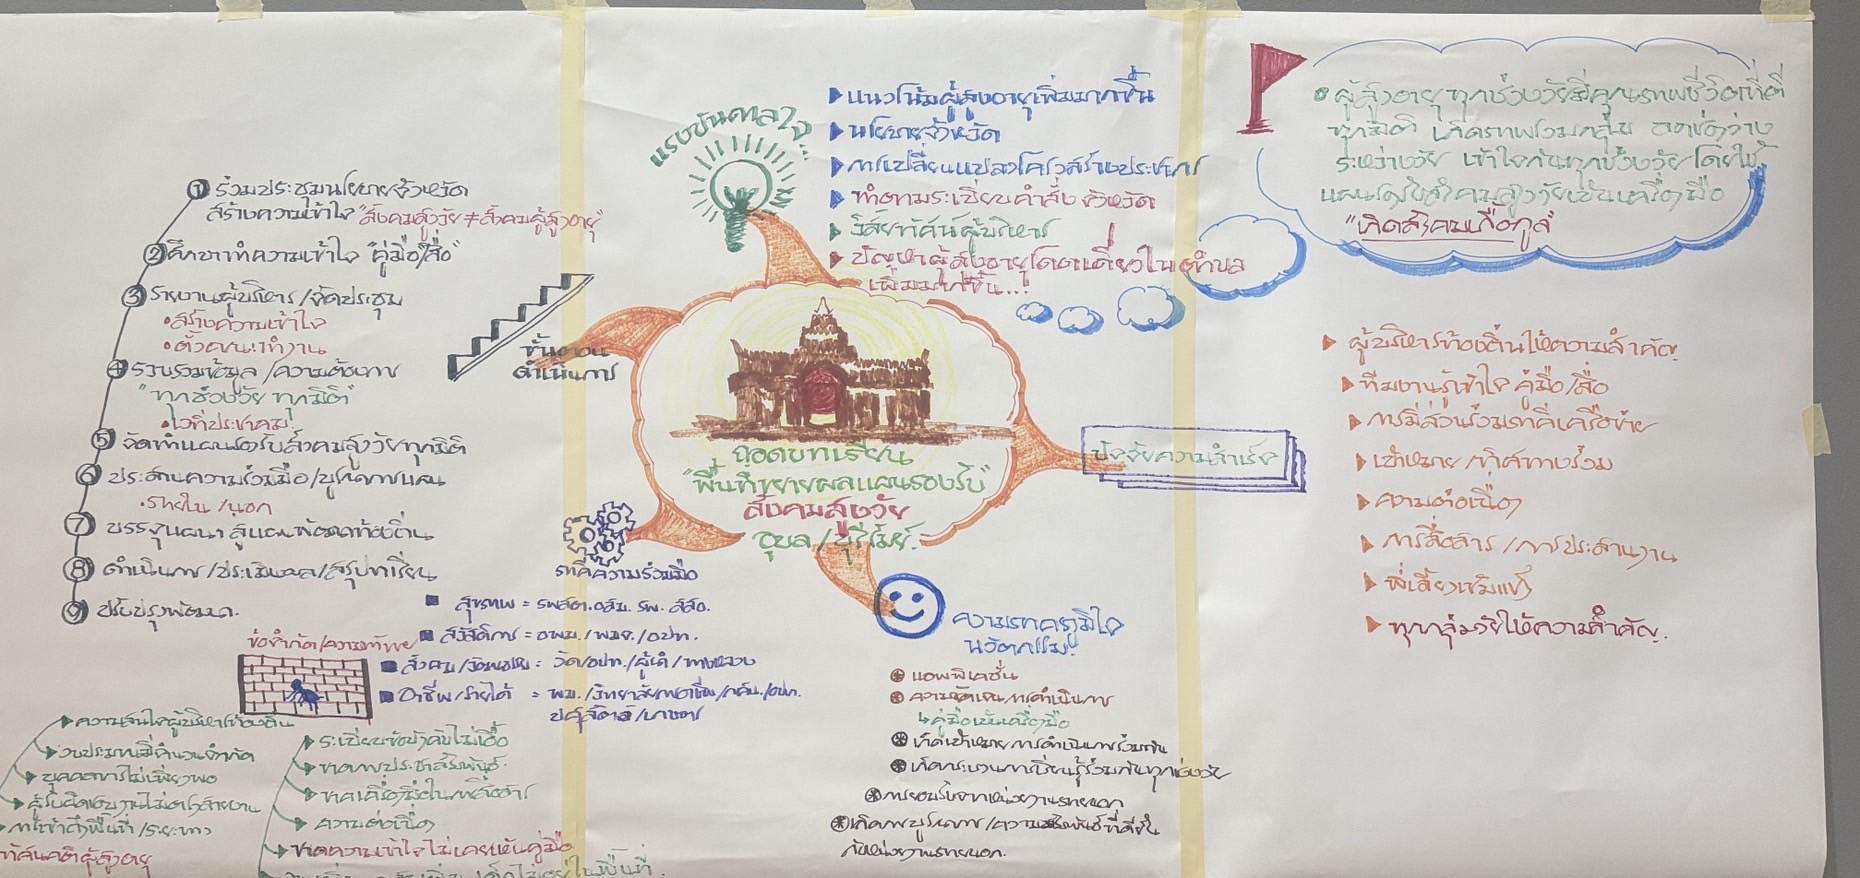 แรงบันดาลใจ...
แนวโน้มผู้สูงอายุเพิ่มมากขึ้น
นโยบายจังหวัด
การเปลี่ยนแปลงโครงสร้างประชากร
ทำตามระเบียบคำสั่งจังหวัด
วิสัยทัศน์ผู้บริหาร
ปัญหาผู้สูงอายุโดดเดี่ยวในตำบล
เพิ่มมากขึ้น...!
ผู้สูงอายุ ทุกช่วงวัยมีคุณภาพชีวิตที่ดี
ทุกมิติ เกิดภาพรวมกลุ่ม ลดช่องว่าง
ระหว่างวัย เข้าใจกันทุกช่วงวัย โดยใช้
แผนรองรับสังคมสูงวัยเป็นเครื่องมือ
"เกิดสังคมเกื้อกูล"
① ร่วมประชุมนโยบายจังหวัด
สร้างความเข้าใจ "สังคมสูงวัย ≠ สังคมผู้สูงอายุ"
② ศึกษาทำความเข้าใจ "คู่มือ/สื่อ"
③ รายงานผู้บริหาร/จัดประชุม
• สร้างความเข้าใจ
• ตั้งคณะทำงาน
④ รวบรวมข้อมูล/ความต้องการ
"ทุกช่วงวัย ทุกมิติ"
• เวทีประชาคม
⑤ จัดทำแผนรองรับสังคมสูงวัยทุกมิติ
⑥ ประสานความร่วมมือ/บูรณาการแผน
• ภายใน/นอก
⑦ บรรจุแผนฯ สู่แผนพัฒนาท้องถิ่น
⑧ ดำเนินการ/ประเมินผล/สรุปบทเรียน
⑨ ปรับปรุงพัฒนา.
ขั้นตอน
ดำเนินการ
ถอดบทเรียน
"พื้นที่ขยายผลแผนรองรับ"
สังคมสูงวัย
อุบล/บุรีรัมย์.
ปัจจัยความสำเร็จ
ผู้บริหารท้องถิ่นให้ความสำคัญ
ทีมงานรู้เข้าใจ คู่มือ/สื่อ
การมีส่วนร่วมภาคีเครือข่าย
เป้าหมาย/ทิศทางร่วม
ความต่อเนื่อง
การสื่อสาร/การประสานงาน
พี่เลี้ยงเข้มแข็ง
ทุกกลุ่มวัยให้ความสำคัญ.
ภาคีความร่วมมือ
สุขภาพ = รพสต. อสม. รพ. สสอ.
สวัสดิการ = อพม./พมจ./อปท.
สังคม/ = วัด/อปท./ผู้นำ/ทางหลวง
อาชีพ/รายได้ = พม./วิทยาลัย/กศน./อปท.
ปศุสัตว์/เกษตร
ความภาคภูมิใจ
นวัตกรรม.
แอพพิเคชั่น
ความชัดเจนการดำเนินการ
↳ คู่มือเป็นเครื่องมือ
เกิดเป้าหมายการดำเนินงานร่วมกัน
เกิดกระบวนการเรียนรู้ร่วมกันทุกช่วงวัย
การยอมรับจากหน่วยงานภายนอก
เกิดการบูรณาการ/ความสัมพันธ์ที่ดีกับ
หน่วยงานภายนอก.
ข้อจำกัด/ความท้าทาย
ความสนใจผู้บริหารท้องถิ่น
งบประมาณมีจำนวนจำกัด
บุคคลากรไม่เพียงพอ
ผู้รับผิดชอบงานไม่ตรงสายงาน
การเข้าถึงพื้นที่/ระยะทาง
ทัศนคติผู้สูงอายุ
ระเบียบข้อบังคับไม่เอื้อ
ขาดการประชาสัมพันธ์.
ขาดเครื่องมือในการสื่อสาร
ความต่อเนื่อง
ขาดความเข้าใจไม่เคยเห็นคู่มือ
ไม่อยู่ในพื้นที่.